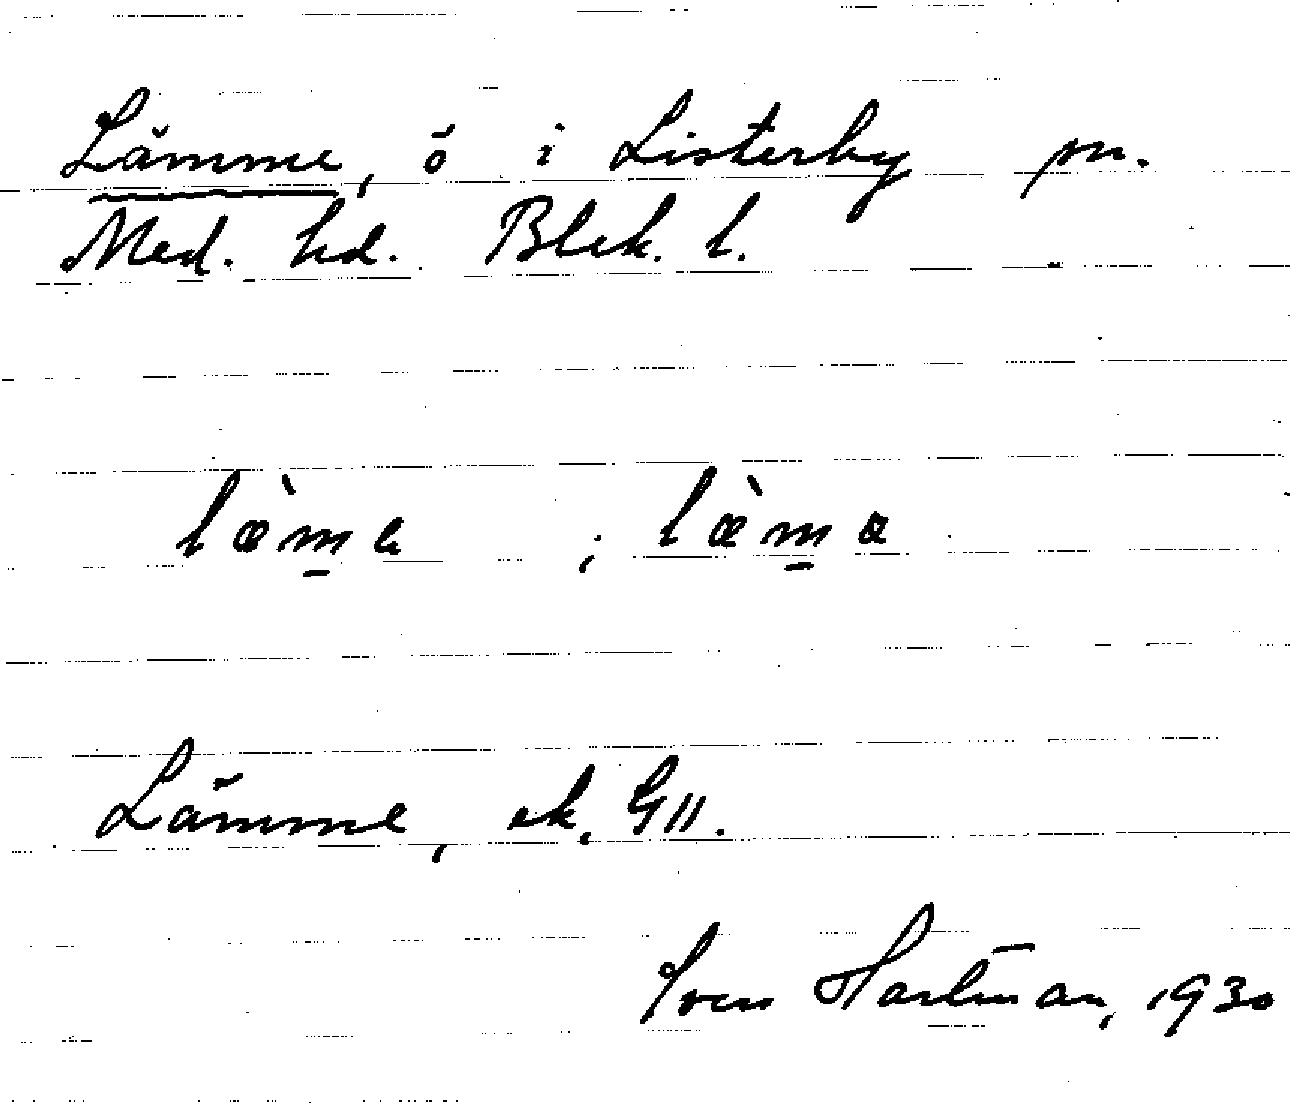 Lämme, ö i Listerby sn.
Med. hd. Blek. l.
læ̀m̱e ; læ̀m̱a
Lämme, ek. G11.
Sven Hartman, 1930